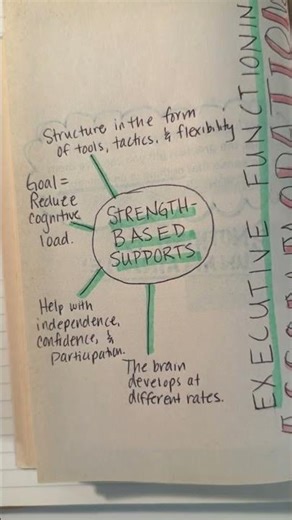 Structure in the form
of tools, tactics, & flexibility
Goal =
Reduce
cognitive
load.
STRENGTH-
BASED
SUPPORTS
Help with
independence,
confidence, &
participation.
The brain
develops at
different rates.
EXECUTIVE FUNCTIONIN